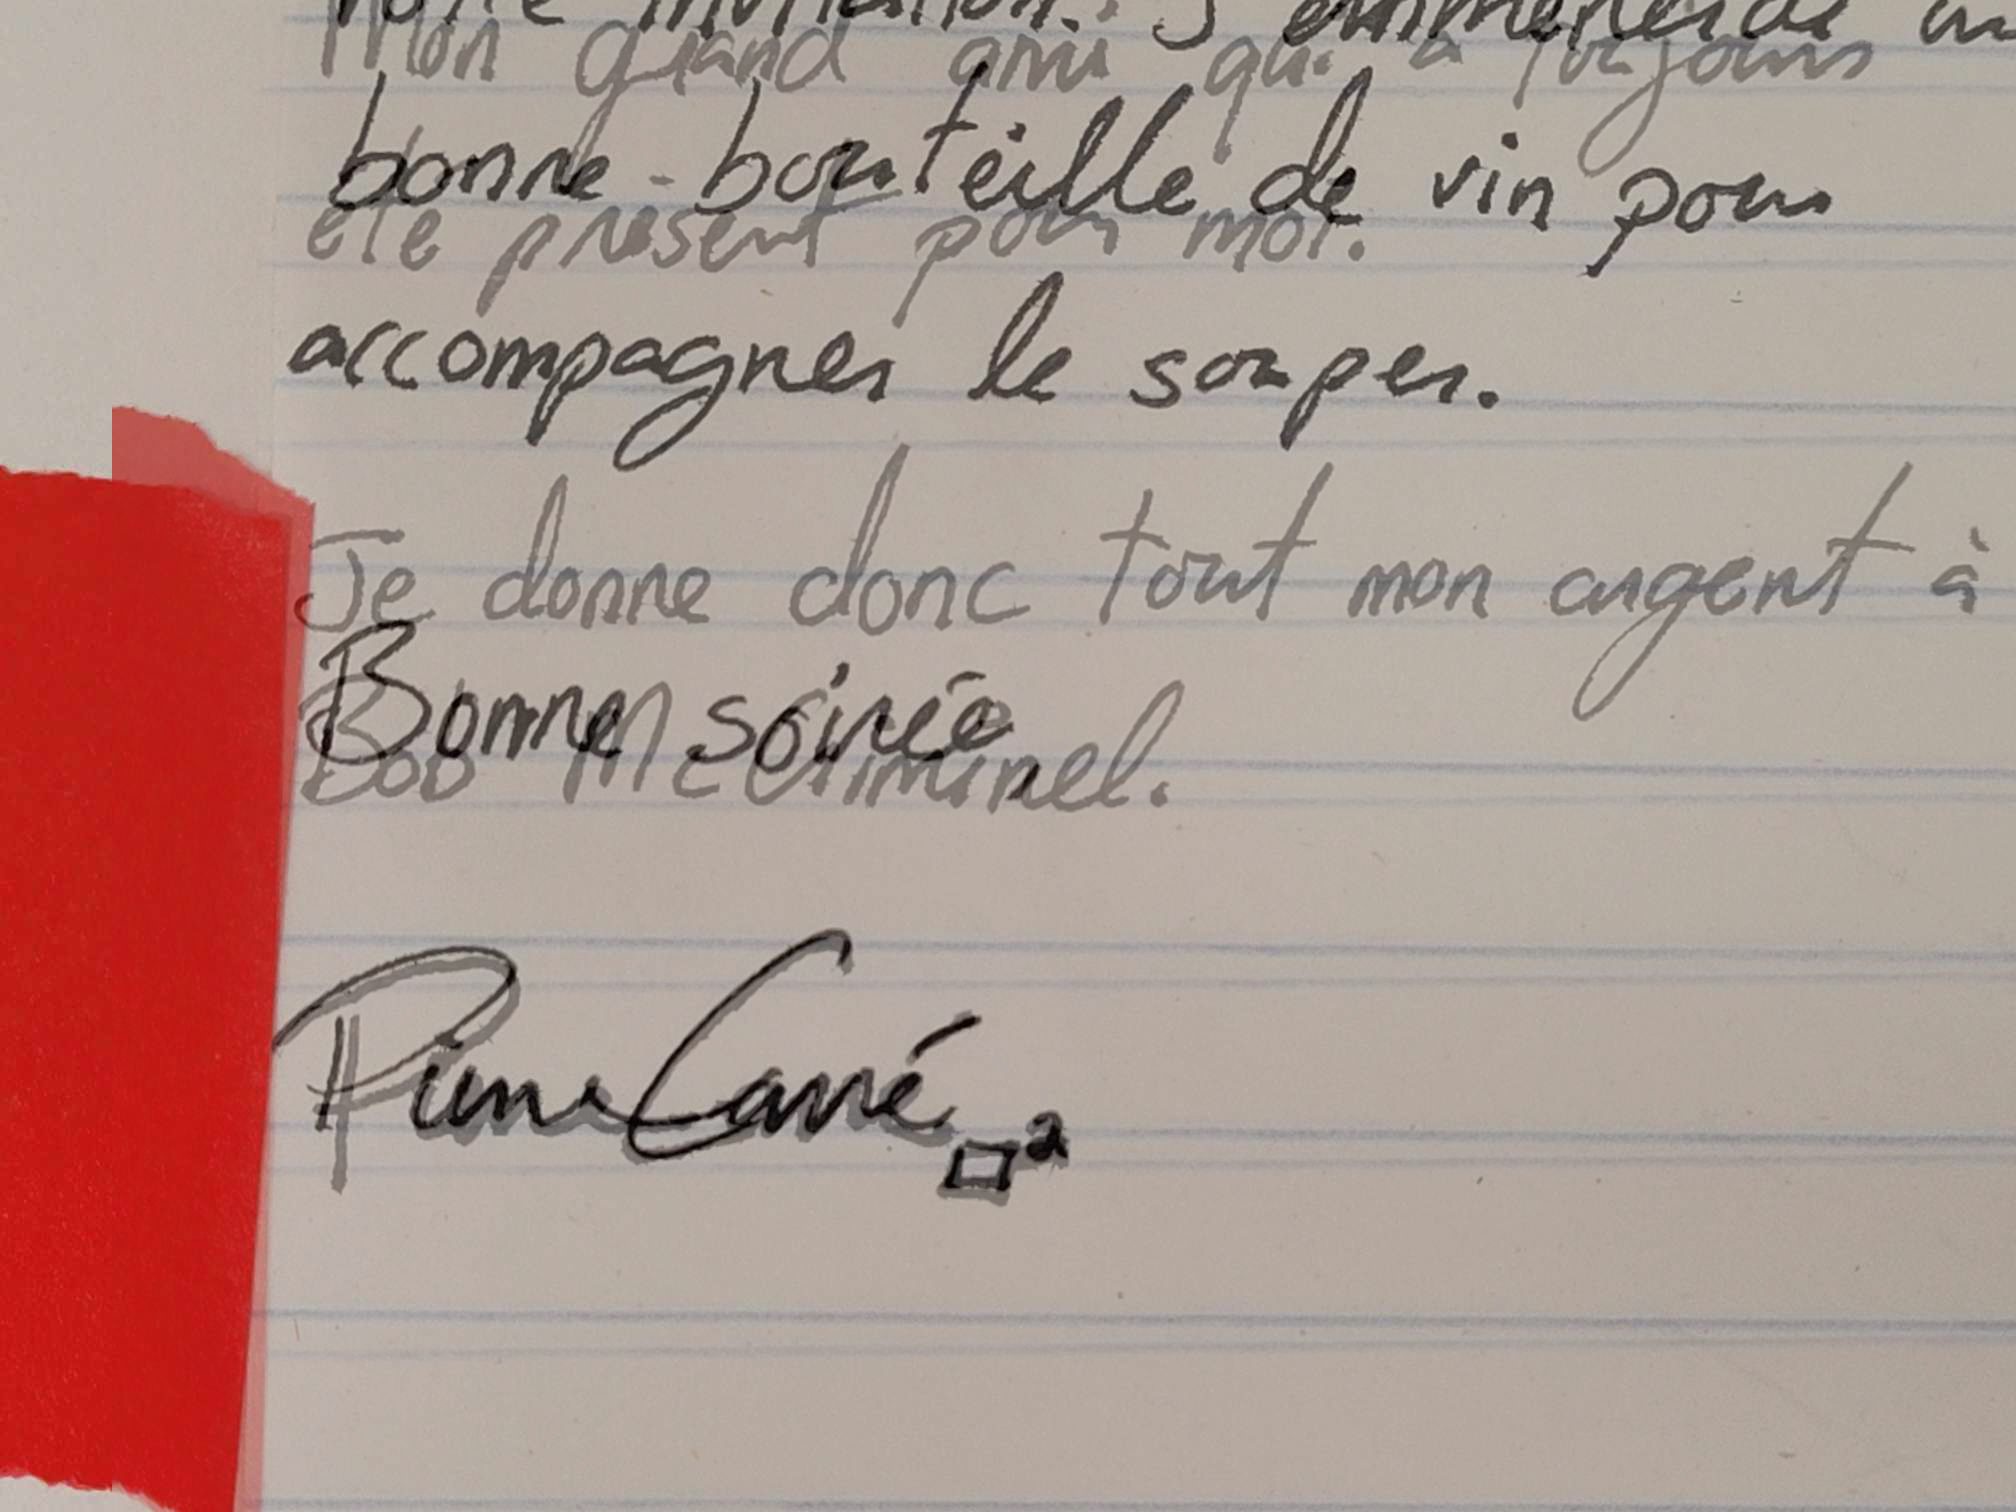 votre invitation. J'emmenerai un
Mon grand ami qui a toujours
bonne bouteille de vin pour
été présent pour moi.
accompagner le souper.
Je donne donc tout mon argent à
Bonne soirée
Bob McCriminel.
Pierre Carré □²